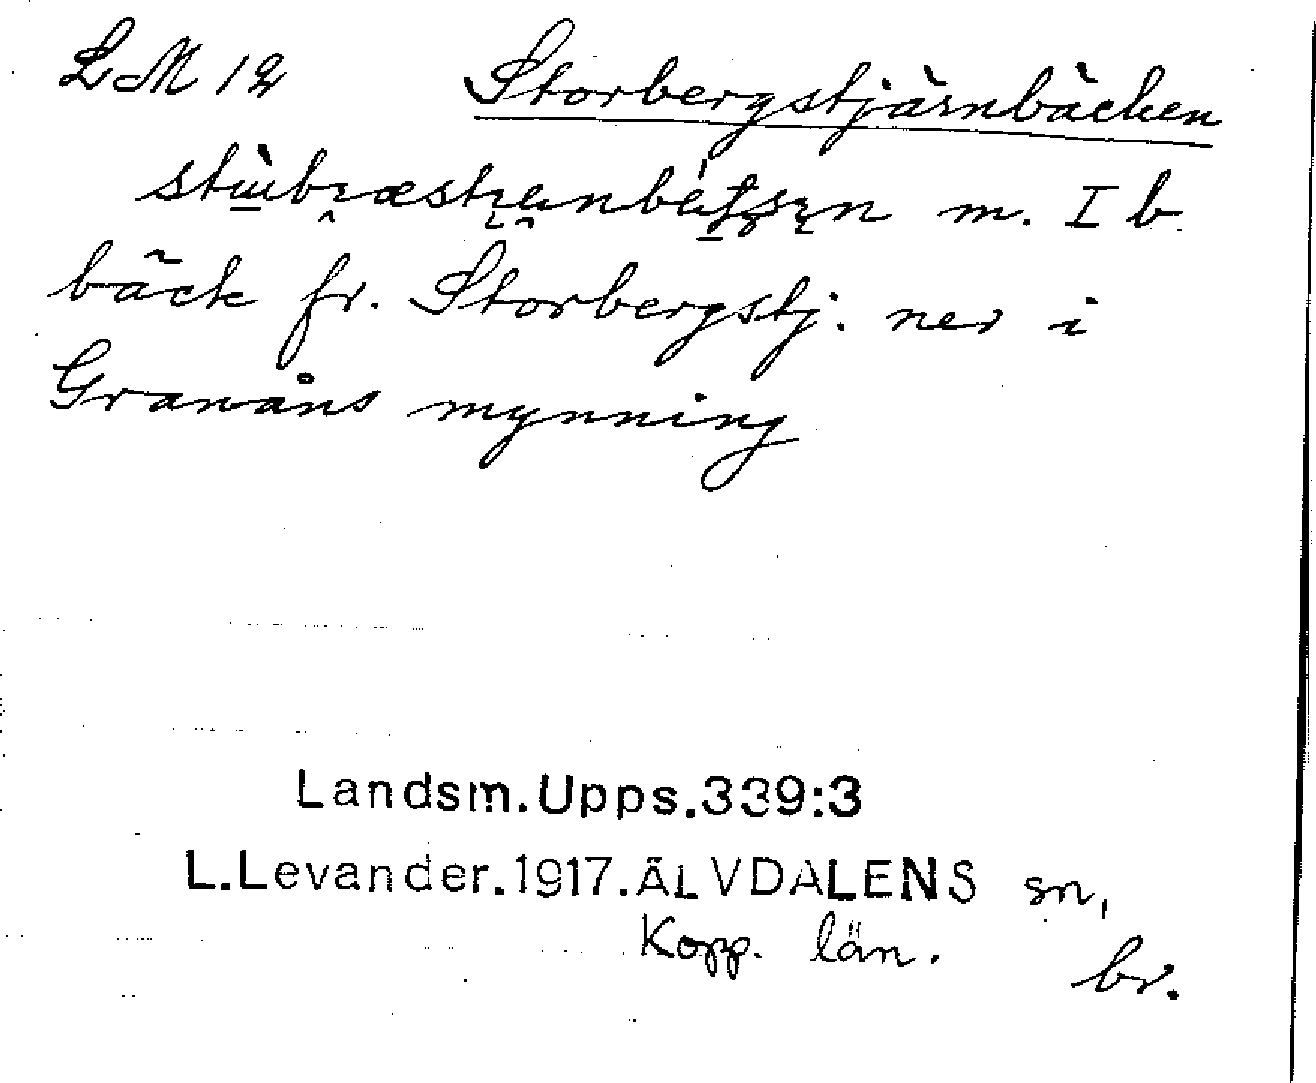 LM 12 Storbergstjärnbäcken
m. I b
bäck fr. Storbergstj. ner i
Granåns mynning
Landsm.Upps.339:3
L.Levander.1917.ÄLVDALENS sn,
Kopp. län.
br.